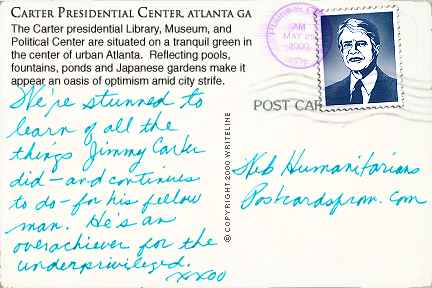 CARTER PRESIDENTIAL CENTER, ATLANTA GA
The Carter presidential Library, Museum, and
Political Center are situated on a tranquil green in
the center of urban Atlanta. Reflecting pools,
fountains, ponds and Japanese gardens make it
appear an oasis of optimism amid city strife.
We're stunned to
learn of all the
things Jimmy Carter
did - and continues
to do - for his fellow
man. He's an
overachiever for the
underprivileged.
xxoo
© COPYRIGHT 2000 WRITELINE
AM
MAY
2000
POST CAR
Web Humanitarians
Postcardsfrom.com